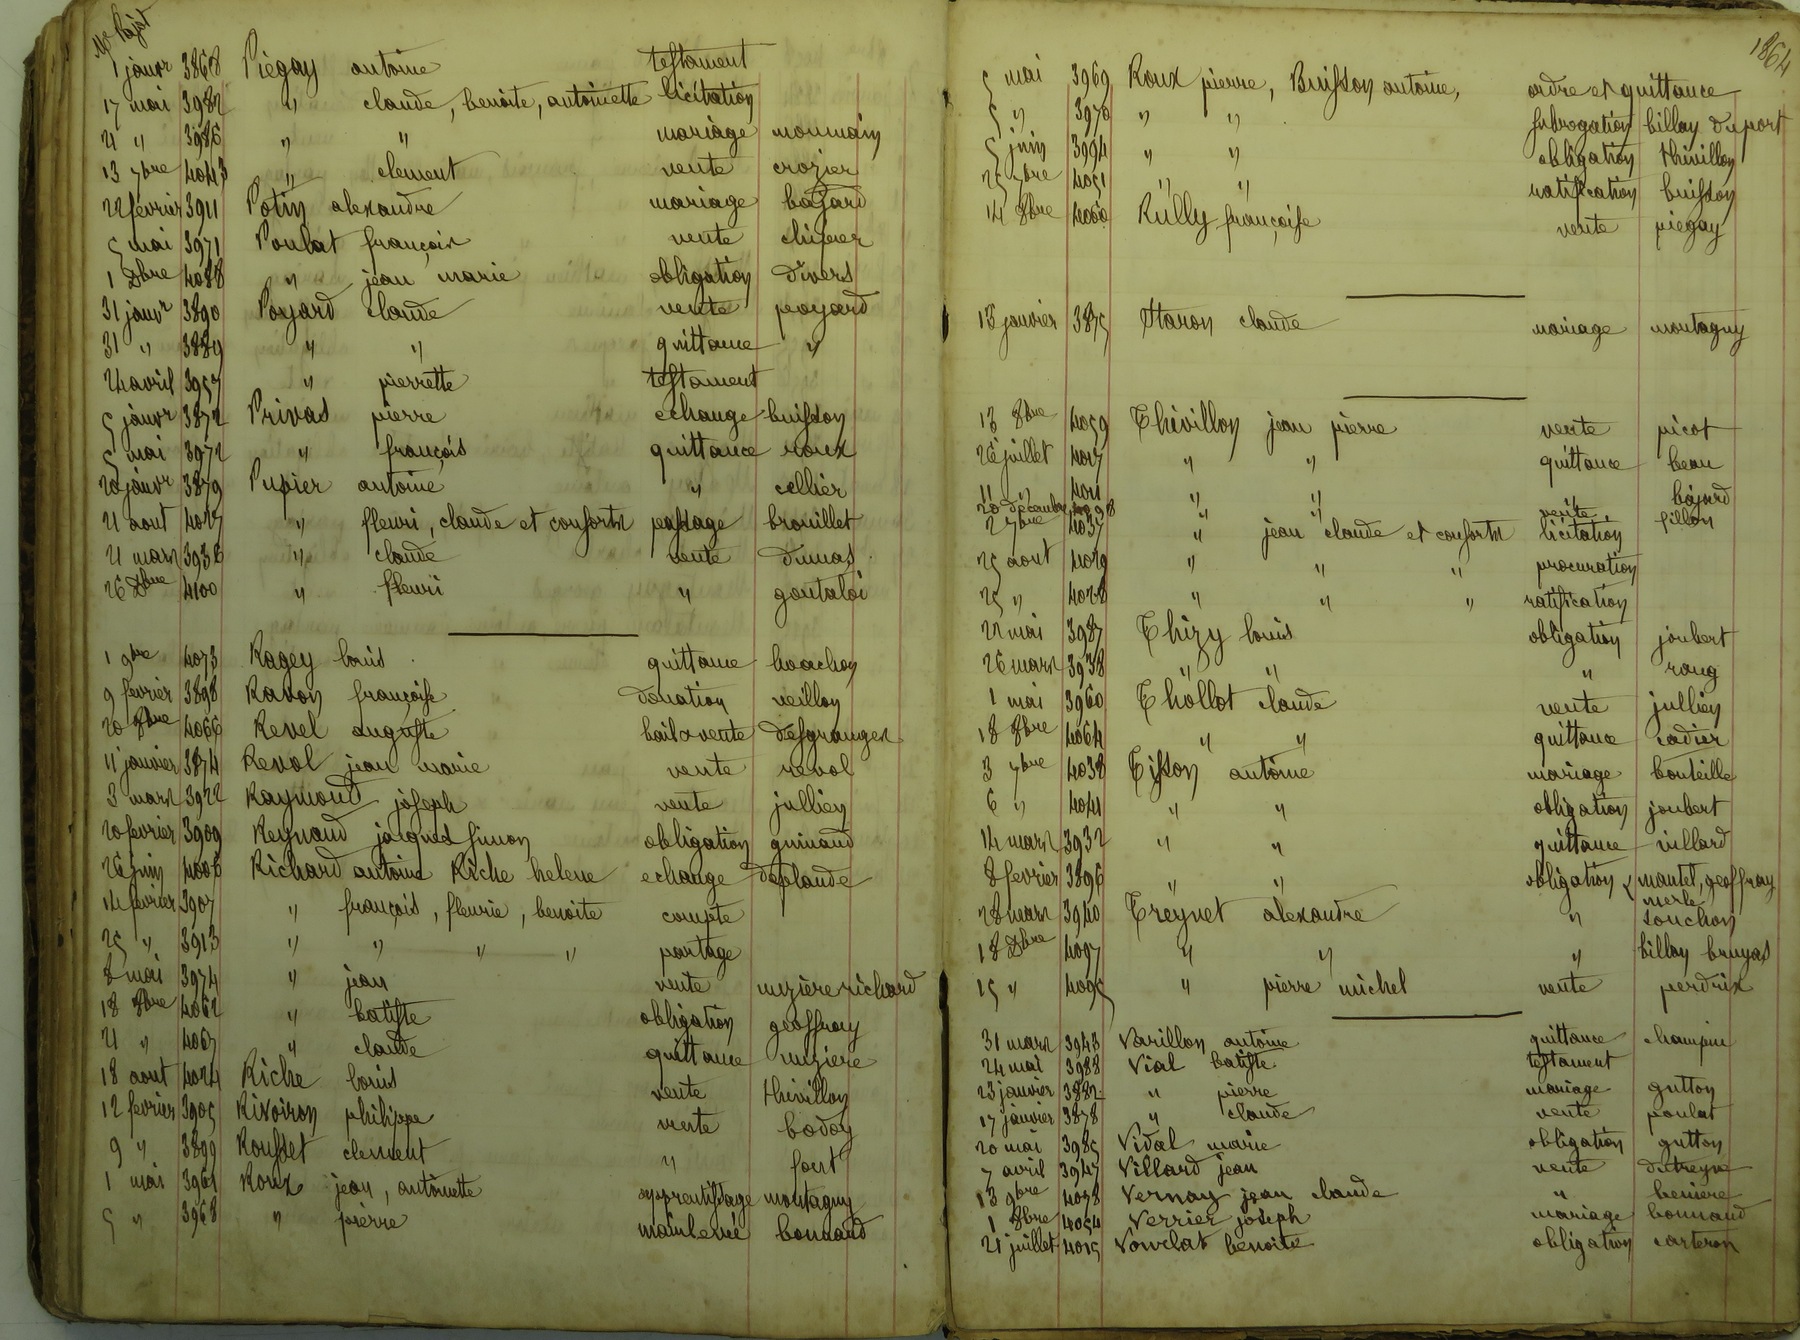 1 janvr 3868 Piegay antoine testament
17 mai 3982 " claude, benoite, antoinette licitation
21 " 3986 " " mariage moumain
13 7bre 4043 " clement vente crozier
22 février 3911 Potin alexandre mariage bajard
5 mai 3971 Poulat françois vente
1 Xbre 4088 " jean marie obligation divers
31 janvr 3890 Poyard claude vente poyard
31 " 3889 " " quittance "
24 avril 3957 " pierrette testament
5 janvr 3872 Privas pierre echange buisson
5 mai 3972 " françois quittance roux
20 janvr 3879 Pupier antoine " cellier
21 aout 4027 " fleuri, claude et consorts passage brouillet
21 mars 3936 " claude vente dumas
26 Xbre 4100 " fleuri " goutaloi
1 9bre 4073 Ragey louis quittance
9 fevrier 3898 Ravon françoise donation veillon
20 8bre 4066 Revel auguste bail & vente desgranges
11 janvier 3874 Revol jean marie vente revol
3 mars 3922 Raymond joseph vente jullien
20 fevrier 3909 Reynaud jacques simon obligation guinand
26 juin 4006 Richard antoine Riche helene echange deplaude
14 fevrier 3907 " françois, fleurie, benoite compte
25 " 3913 " " " " partage
8 mai 3974 " jean vente mizière richard
18 8bre 4062 " batiste obligation geoffray
21 " 4067 " claude quittance miziere
18 aout 4024 Riche louis vente thivillon
12 fevrier 3905 Rivoiron philippe vente bodoy
9 " 3899 Rousset clement " font
1 mai 3961 Roux jean, antoinette apprentissage montagny
5 " 3968 " pierre mainlevée bonnard
1864
5 mai 3969 Roux pierre, Buisson antoine, ordre et quittance
5 " 3970 " " subrogation billay duport
5 juin 3994 " " obligation thivillon
25 7bre 4051 " " ratification buisson
14 8bre 4060 Rully françoise vente piegay
13 janvier 3875 Staron claude mariage montagny
13 8bre 4059 Thivillon jean pierre vente picot
26 juillet 4017 " " quittance beau
11 " 4011 " " bajard
20 decembre " " vente fillon
2 7bre 4037 " jean claude et consorts licitation
25 aout 4029 " " " procuration
25 " 4028 " " " ratification
22 mai 3987 Thizy louis obligation joubert
26 mars 3938 " " "
1 mai 3960 Thollot claude vente jullien
18 8bre 4064 " " quittance cadier
3 7bre 4038 Tisson antoine mariage bouteille
6 " 4041 " " obligation joubert
14 mars 3932 " " quittance villard
8 fevrier 3896 " " obligation mantel, geoffray
merle
28 mars 3940 Treynet alexandre " souchon
18 Xbre 4097 " " " billay bruyas
15 " 4095 " pierre michel vente perdrix
31 mars 3943 Varillon antoine quittance champin
24 mai 3988 Vial batiste testament
23 janvier 3882 " pierre mariage gutton
17 janvier 3878 " claude vente poulat
20 mai 3985 Vidal marie obligation gutton
7 avril 3947 Villard jean vente
13 9bre 4078 Vernay jean claude " beniere
1 8bre 4054 Verrier joseph mariage bonnand
21 juillet 4015 Vourlat benoite obligation carteron